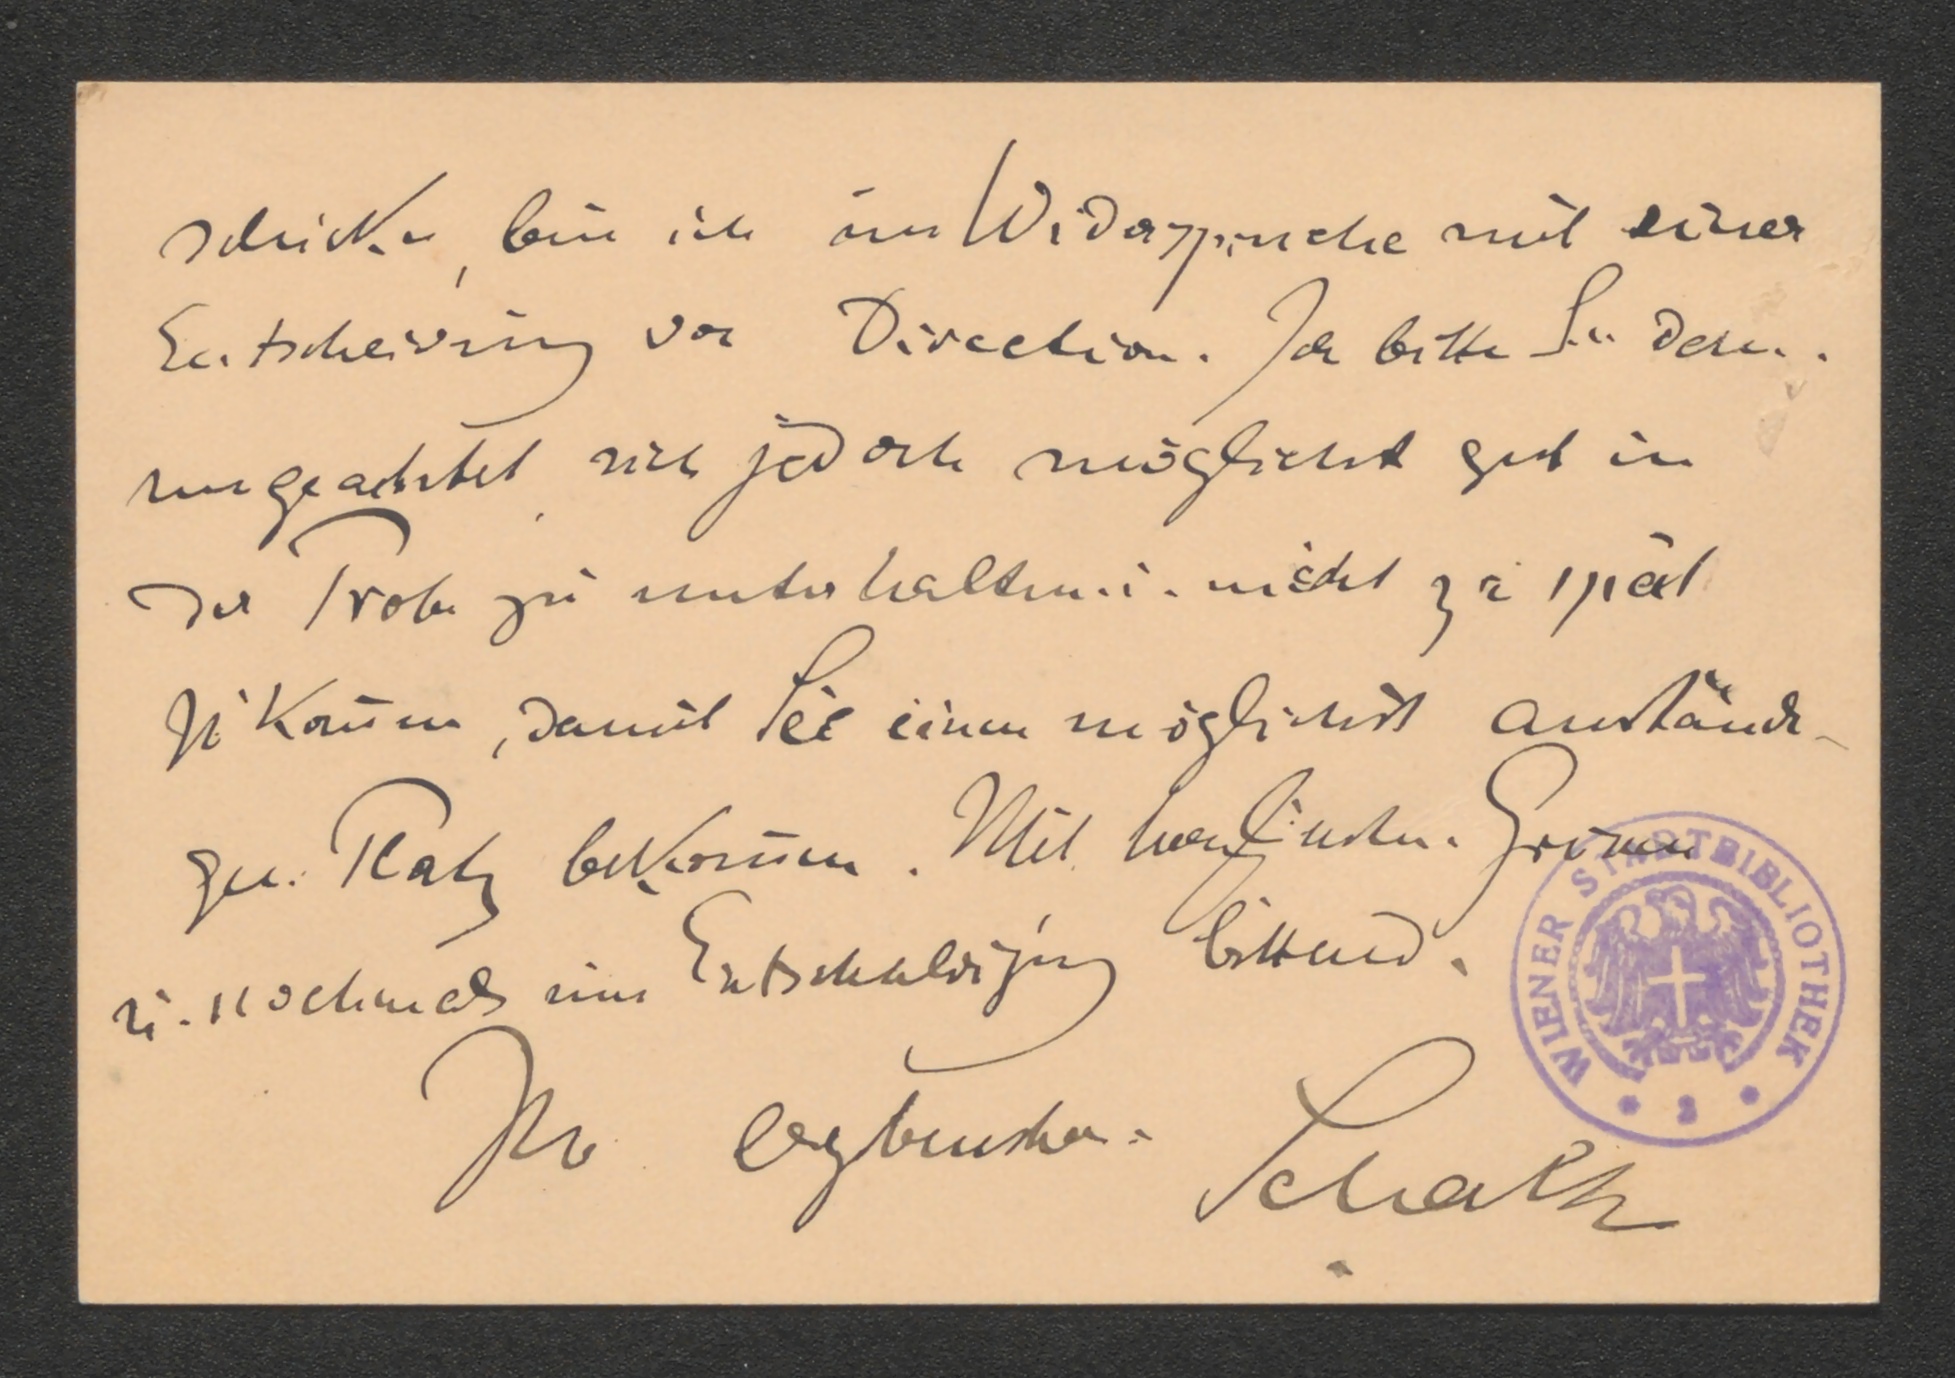 schicken, bin ich im Widerspruche mit einer
Entscheidung von Direction. Ich bitte Sie dem-
ungeachtet, sich jedoch möglichst gut in
der Probe zu unterhalten u. nicht zu spät
zu kom̄en, damit Sie einen möglichst anständi-
gen Platz bekom̄en. Mit herzlichen Grüssen
u. nochmals um Entschuldigung bittend.
Ihr ergebenster
Schalk
WIENER STADTBIBLIOTHEK